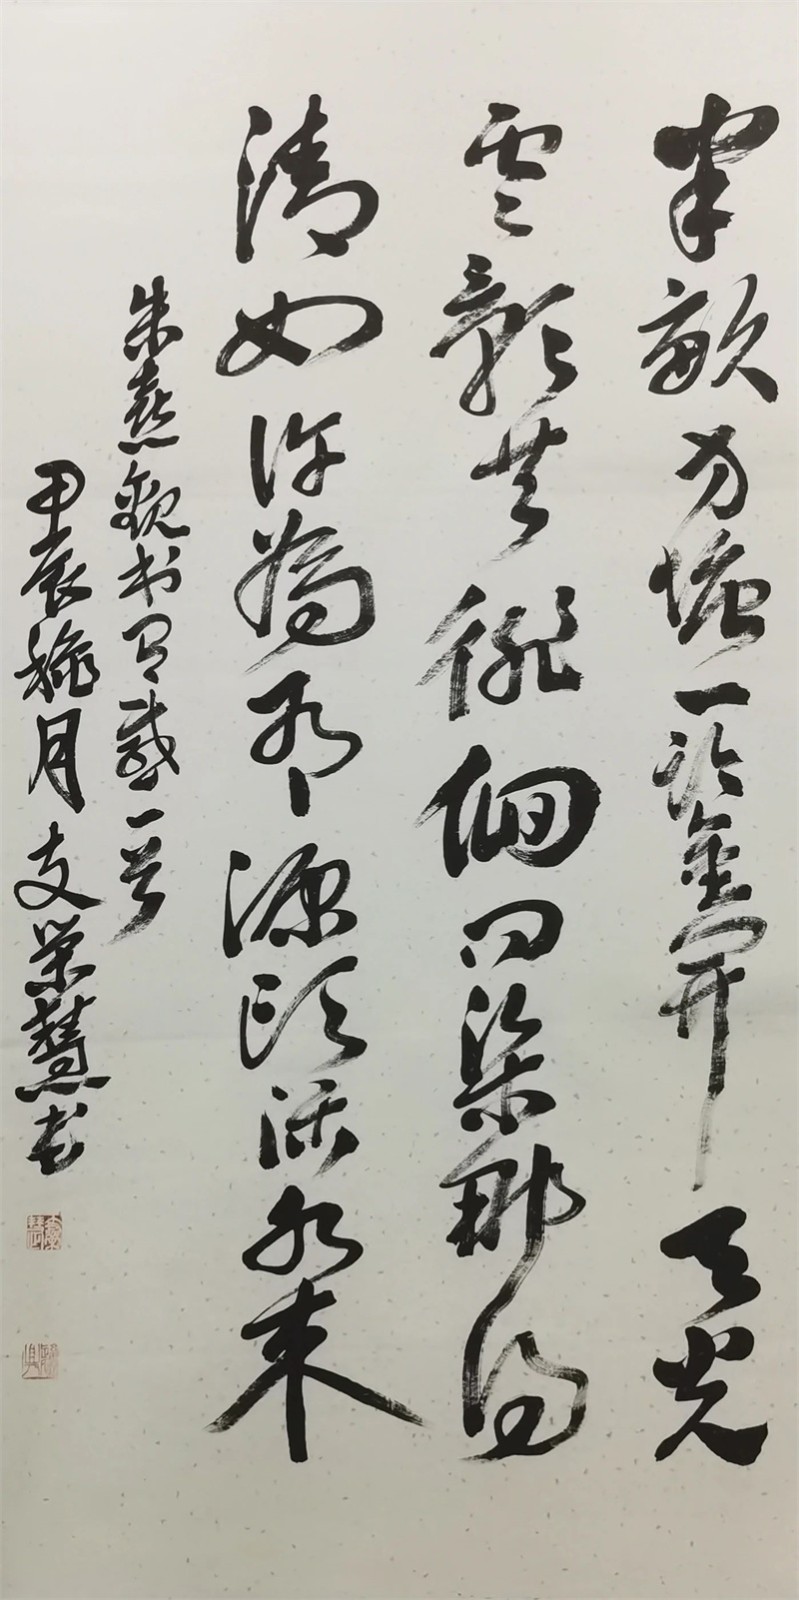 半亩方塘一鉴开天光
云影共徘徊问渠那得
清如许为有源头活水来
朱熹观书有感一首
甲辰秋月支荣慧书